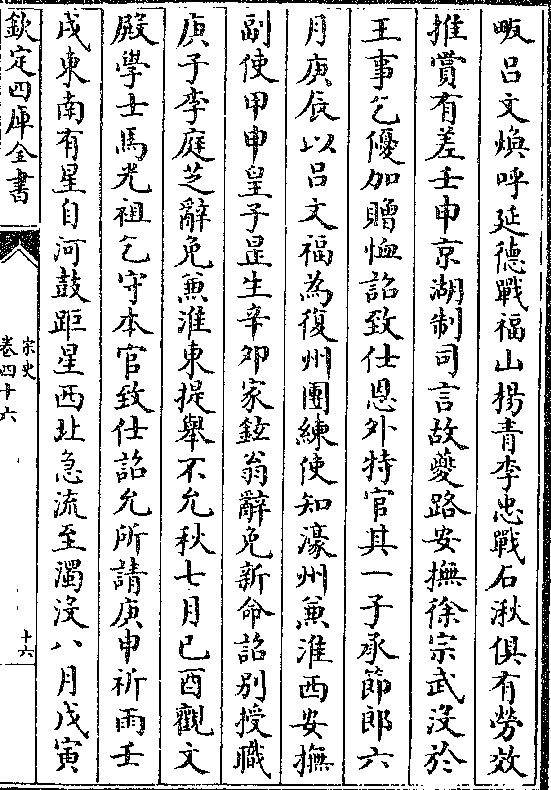 畈吕文煥呼延德戰福山楊青李忠戰石湫俱有勞效
推賞有差壬申京湖制司言故夔路安撫徐宗武沒於
王事乞優加贈恤詔致仕恩外特官其一子承節郎六
月庚辰以吕文福為復州團練使知濠州兼淮西安撫
副使甲申皇子㬎生辛卯家鉉翁辭免新命詔別授職
庚子李庭芝辭免兼淮東提舉不允秋七月己酉觀文
殿學士馬光祖乞守本官致仕詔允所請庚申祈雨壬
戌東南有星自河鼓距星西北急流至濁沒八月戊寅
欽定四庫全書
宋史
卷四十六
十六